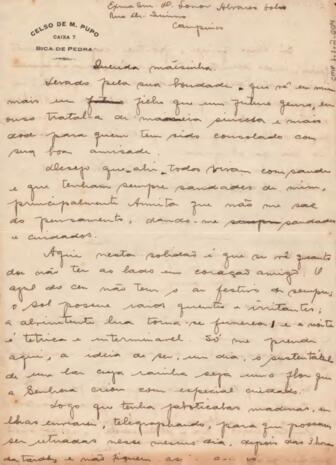 CELSO DE M. PUPO
CAIXA 7
BICA DE PEDRA
Exma Snr. D. Leonor Alvares Lobo
Campinas
Querida mãisinha.
Levado pela sua bondade que vê em mim
mais um filho que um futuro genro, eu
ouso tratal-a de maneira sincera e mais
para quem tem sido consolado com
sua boa amizade.
Desejo que ahi todos vivam com saude
e que tenham sempre saudades de mim,
principalmente Annita que não me sae
do pensamento, dando-me saudades
e cuidados.
Aqui nesta solidão é que se vê quanto
dóe não ter ao lado um coração amigo. O
azul do céu não tem o ar festivo de sempre;
o sol possue raios quentes e irritantes;
a alvinitente lua torna-se funerea; e a noite
é tetrica e interminavel. Só me prende
aqui, a ideia de ser, um dia, o sustentaculo
de um lar cuja rainha seja uma flor que
a Senhora criou com especial cuidado.
Logo que tenha jaboticabas maduras, eu
lhas enviarei, telegraphando, para que possam
ser retiradas nesse mesmo dia, depois das
da tarde, e não fiquem